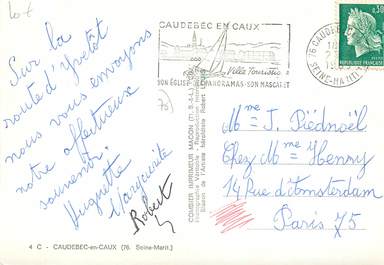 Sur la
route d'Yvetot
nous vous envoyons
notre affectueux
souvenir.
Huguette
Marguerite
Robert
CAUDEBEC EN CAUX
Ville Touristique
SON ÉGLISE PANORAMAS SON MASCARET
76 CAUDEBEC
SEINE-MARITIME
0,30
REPUBLIQUE FRANÇAISE
COMBIER IMPRIMEUR MACON (71. S.-&-L.)
Mme J. Piednoël
Chez Mme Henry
14 Rue d'Amsterdam
Paris 75
4 C - CAUDEBEC-en-CAUX (76. Seine-Marit.)